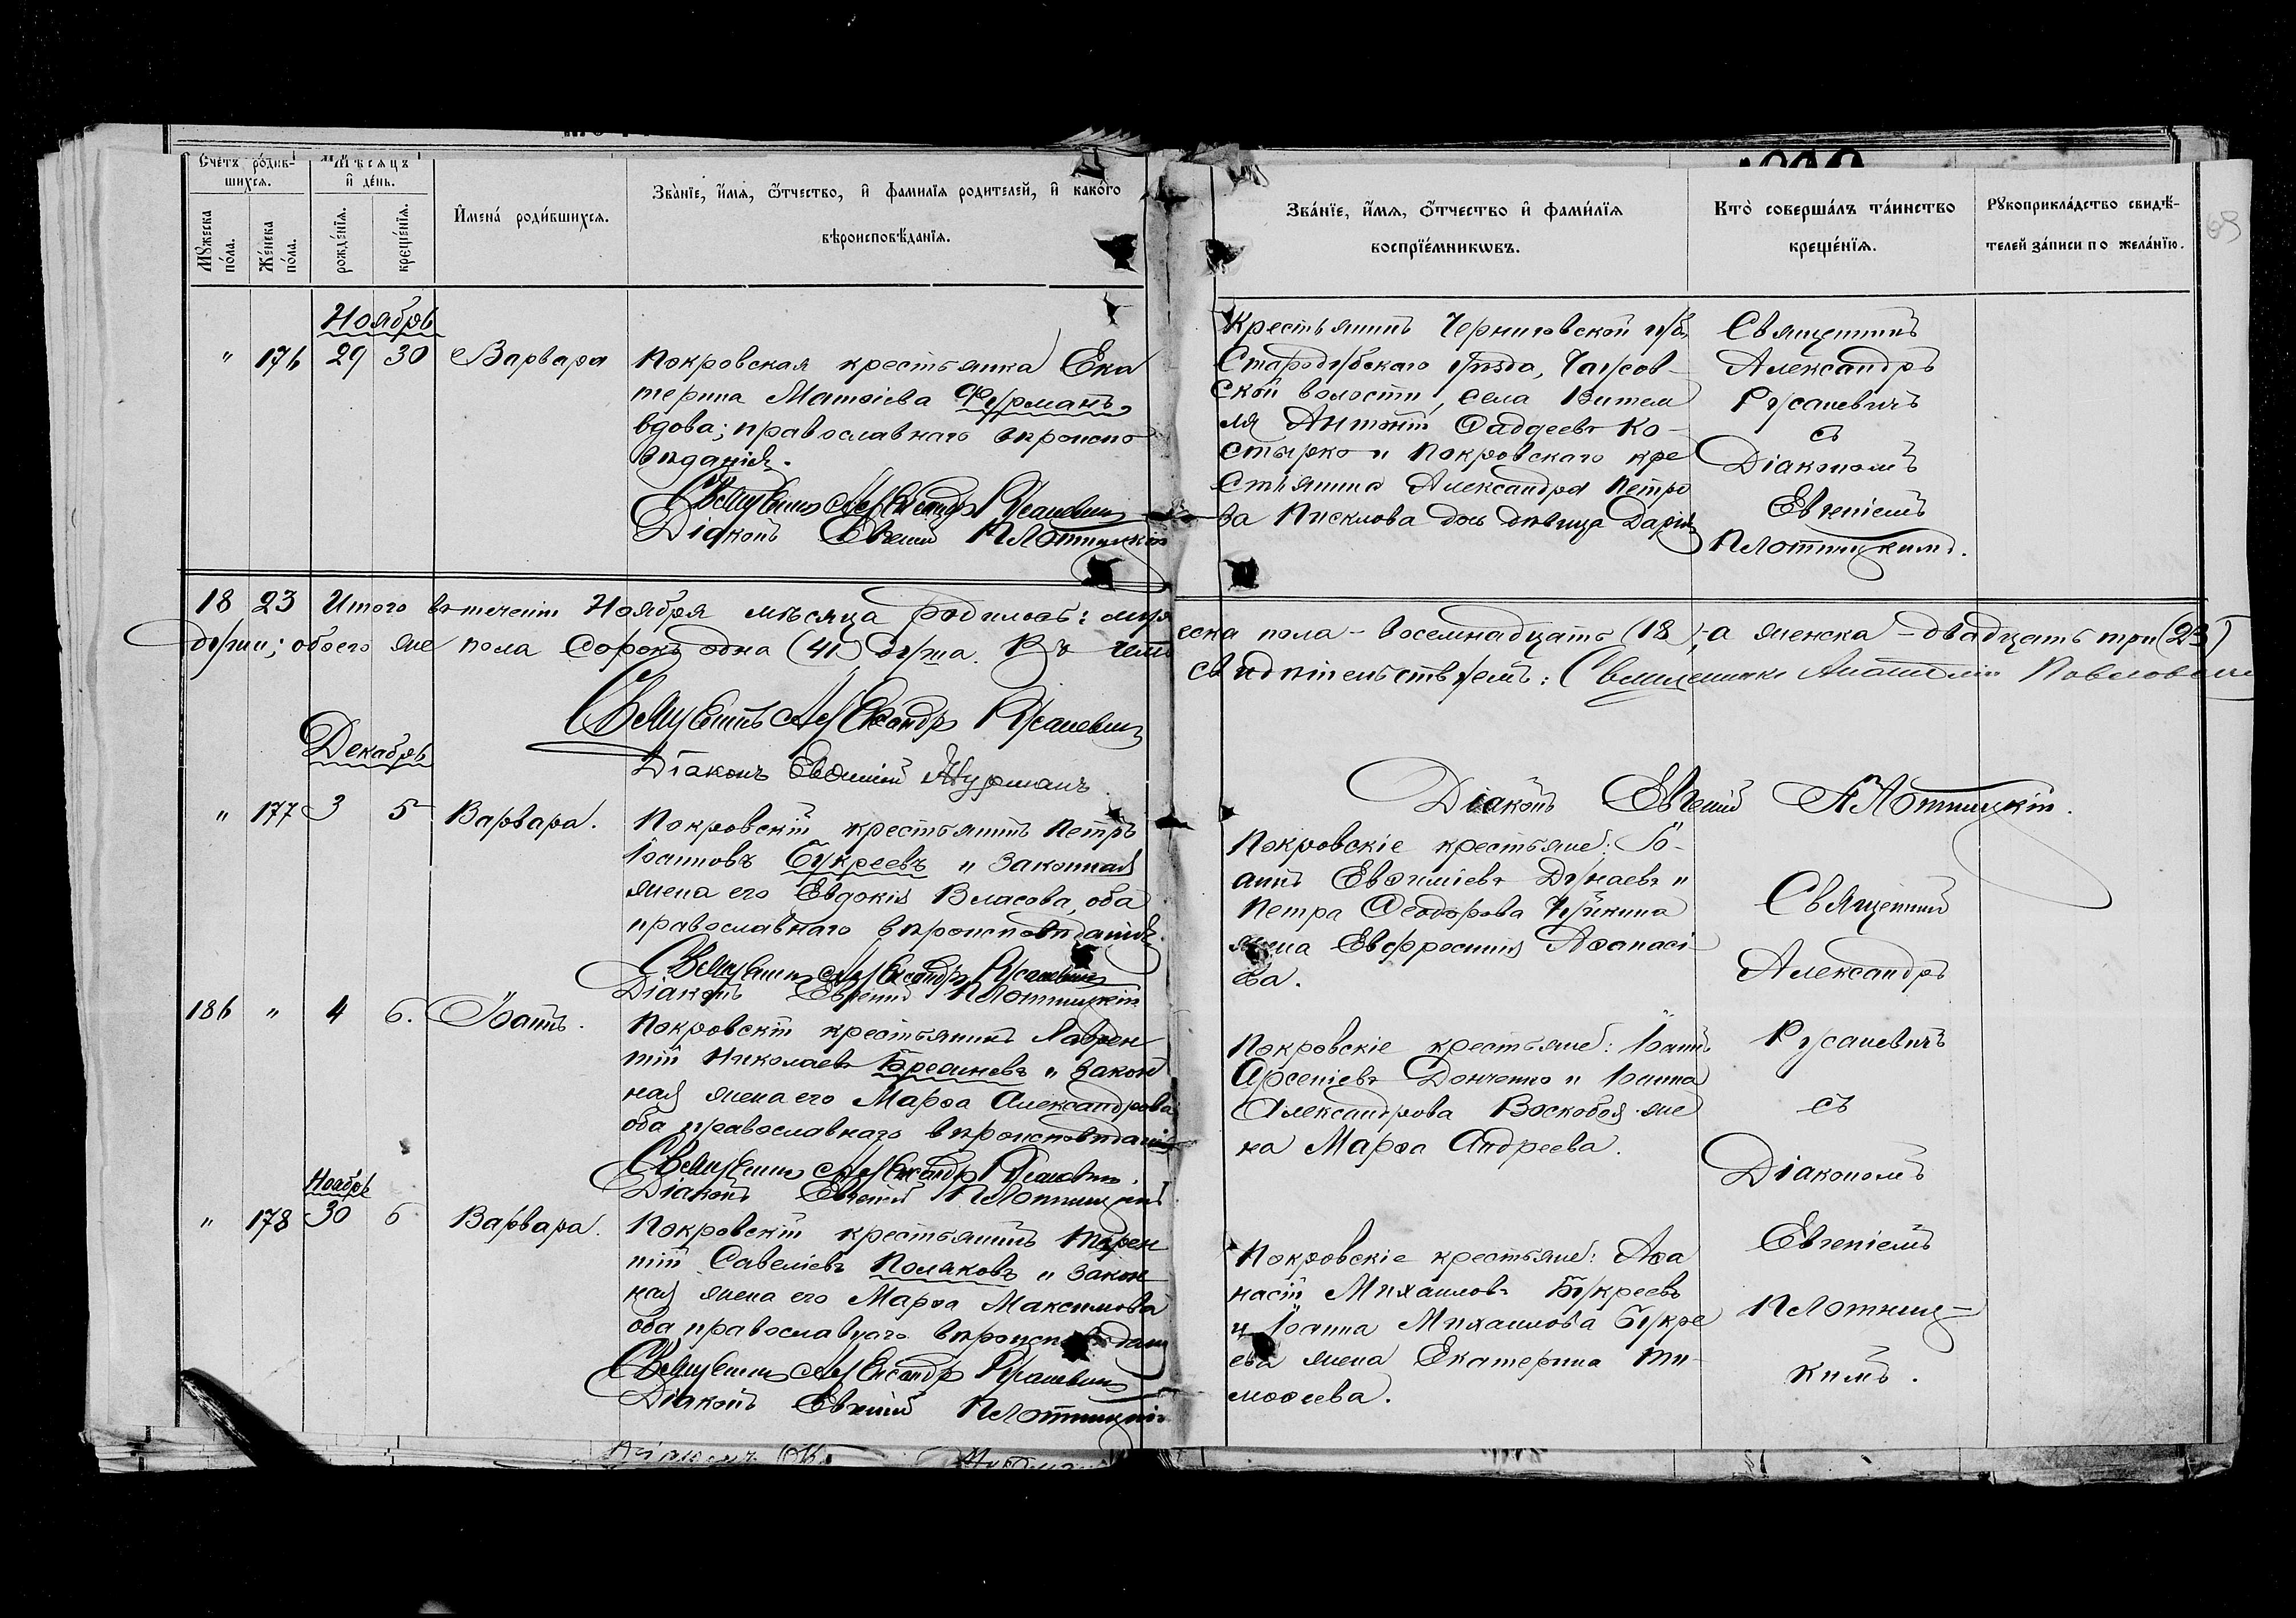 Счетъ родив-
шихся.
Мѣсяцъ
и день.
Мужеска
пола.
Женска
пола.
рожденія.
крещенія.
Имена родившихся.
Званіе, имя, отчество, и фамилія родителей, и какого
вѣроисповѣданія.
Званіе, имя, отчество и фамилія
воспріемниковъ.
Кто совершалъ таинство
крещенія.
Рукоприкладство свидѣ-
телей записи по желанію.
Ноябрь
" 176 29 30 Варвара
Покровская крестьянка Ека
терина Матѳіева Фурманъ,
вдова; православнаго вѣроиспо
вѣданія.
Священникъ Александръ Русаневичъ
Діаконъ Евгеній Плотницкій
Крестьянинъ Черниговской губ.
Стародубскаго уѣзда, Чаусов-
ской волости, села Витем
ля Антоній Ѳаддеевъ Ко-
стырко и Покровскаго кре
стьянина Александра Петро
ва Писклова дочь дѣвица Дарія
Священникъ
Александръ
Русаневичъ
съ
Діакономъ
Евгеніемъ
Плотницкимъ.
18 23 Итого въ теченіи Ноября мѣсяца родилось: муж
еска пола - восемнадцать (18), а женска - двадцать три (23)
души; обоего же пола сорокъ одна (41) душа. Въ чемъ
свидѣтельствуемъ: Священники
Священникъ Александръ Русаневичъ
Діаконъ Евѳимій
Діаконъ Евгеній Плотницкій.
Декабрь
" 177 3 5 Варвара.
Покровскій крестьянинъ Петръ
Іоанновъ Букреевъ и законная
жена его Евдокія Власова, оба
православнаго вѣроисповѣданія.
Священникъ Александръ Русаневичъ
Діаконъ Евгеній Плотницкій
Покровскіе крестьяне: Іо-
аннъ Евѳиміевъ Дунаевъ и
Петра Ѳеодорова
жена Евфросинія Аѳанасі
ева.
186 " 4 6. Іоаннъ.
Покровскій крестьянинъ Лаврен
тій Николаевъ и закон
ная жена его Марѳа Александрова
оба православнаго вѣроисповѣданія
Священникъ Александръ Русаневичъ.
Діаконъ Евгеній Плотницкій
Покровскіе крестьяне: Іоаннъ
Арсеніевъ Донченко и Іоанна
Александрова Воскобоя же
на Марѳа Андреева.
Ноябрь
" 178 30 6 Варвара.
Покровскій крестьянинъ Терен
тій Савеліевъ Поляковъ и закон
ная жена его Марѳа Максимова
оба православнаго вѣроисповѣдан
Священникъ Александръ Русаневичъ
Діаконъ Евгеній Плотницкій
Покровскіе крестьяне: Аѳа
насій Михаиловъ Букреевъ
и Іоанна Михаилова Букре
ева жена Екатерина Ти-
моѳеева.
Священникъ
Александръ
Русаневичъ
съ
Діакономъ
Евгеніемъ
Плотниц-
кимъ.